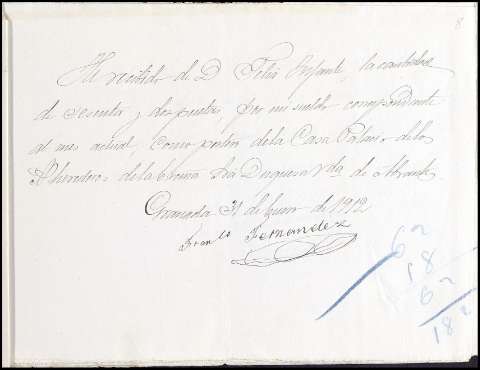 8
He recibido de D Felix Infante, la cantidad
de sesenta y dos pesetas, por mi sueldo correspondiente
al mes actual, como portero de la Casa Palacio de los
Herederos de la Excma Sra Duquesa Vda de Abrantes
Granada 31 de Enero de 1912
Franco Fernandez
62
18
62
182